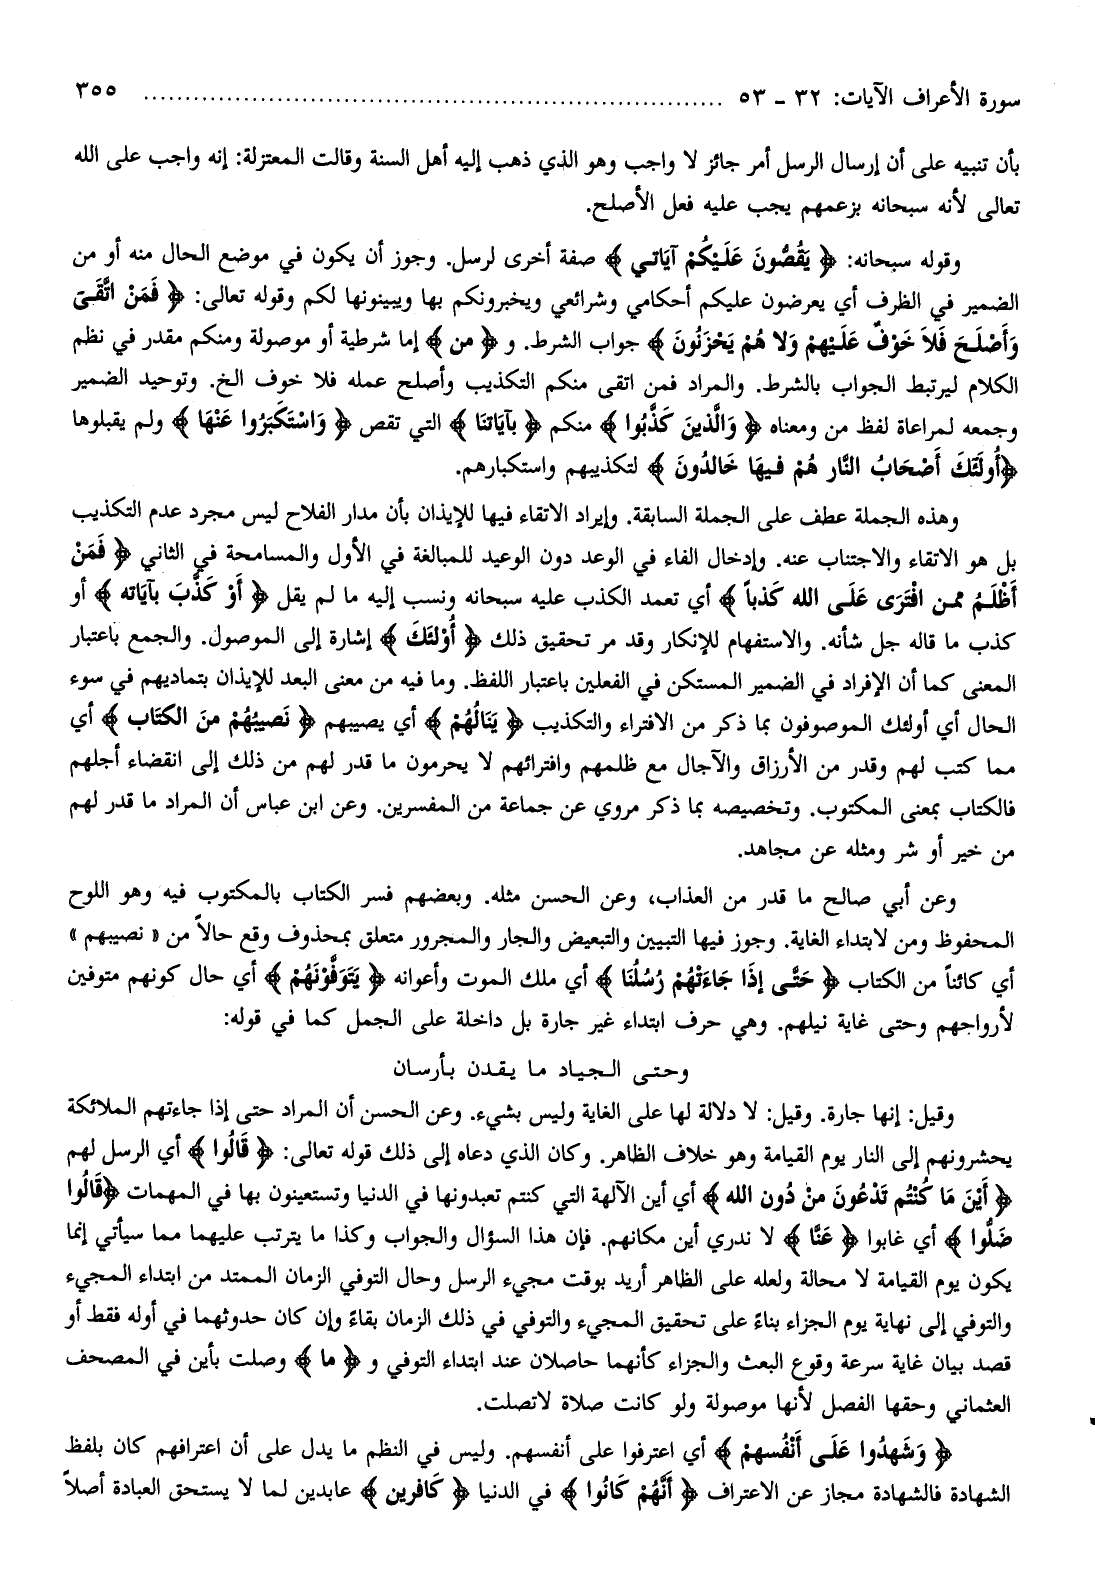 سورة الأعراف الآيات: ٣٢ - ٥٣ ........................................................................ ٣٥٥
بأن تنبيه على أن إرسال الرسل أمر جائز لا واجب وهو الذي ذهب إليه أهل السنة وقالت المعتزلة: إنه واجب على الله
تعالى لأنه سبحانه بزعمهم يجب عليه فعل الأصلح.
وقوله سبحانه: ﴿ يَقُصُّونَ عَلَيكُمْ آيَاتي ﴾ صفة أخرى لرسل. وجوز أن يكون في موضع الحال منه أو من
الضمير في الظرف أي يعرضون عليكم أحكامي وشرائعي ويخبرونكم بها ويبينونها لكم وقوله تعالى: ﴿ فَمَنْ اتَّقَىَ
وَأَصْلَحَ فَلاَ خَوْفٌ عَلَيْهِمْ وَلا هُمْ يَحْزَنُونَ ﴾ جواب الشرط. و ﴿ من ﴾ إما شرطية أو موصولة ومنكم مقدر في نظم
الكلام ليرتبط الجواب بالشرط. والمراد فمن اتقى منكم التكذيب وأصلح عمله فلا خوف الخ. وتوحيد الضمير
وجمعه لمراعاة لفظ من ومعناه ﴿ وَالَّذينَ كَذَّبُوا ﴾ منكم ﴿ بآيَاتنَا ﴾ التي تقص ﴿ وَاسْتَكبَرُوا عَنْهَا ﴾ ولم يقبلوها
﴿أُولَئَكَ أَصْحَابُ النَّار هُمْ فيهَا خَالدُونَ ﴾ لتكذيبهم واستكبارهم.
وهذه الجملة عطف على الجملة السابقة. وإيراد الاتقاء فيها للإيذان بأن مدار الفلاح ليس مجرد عدم التكذيب
بل هو الاتقاء والاجتناب عنه. وإدخال الفاء في الوعد دون الوعيد للمبالغة في الأول والمسامحة في الثاني ﴿ فَمَنْ
أَظْلَمُ ممن افْتَرَى عَلَى الله كَذباً ﴾ أي تعمد الكذب عليه سبحانه ونسب إليه ما لم يقل ﴿ أَوْ كَذَّبَ بآيَاته ﴾ أو
كذب ما قاله جل شأنه. والاستفهام للإنكار وقد مر تحقيق ذلك ﴿ أُوْلئَكَ ﴾ إشارة إلى الموصول. والجمع باعتبار
المعنى كما أن الإفراد في الضمير المستكن في الفعلين باعتبار اللفظ. وما فيه من معنى البعد للإيذان بتماديهم في سوء
الحال أي أولئك الموصوفون بما ذكر من الافتراء والتكذيب ﴿ يَنَالُهُمْ ﴾ أي يصيبهم ﴿ نَصيبُهُمْ منَ الكتَاب ﴾ أي
مما كتب لهم وقدر من الأرزاق والآجال مع ظلمهم وافترائهم لا يحرمون ما قدر لهم من ذلك إلى انقضاء أجلهم
فالكتاب بمعنى المكتوب. وتخصيصه بما ذكر مروي عن جماعة من المفسرين. وعن ابن عباس أن المراد ما قدر لهم
من خير أو شر ومثله عن مجاهد.
وعن أبي صالح ما قدر من العذاب، وعن الحسن مثله. وبعضهم فسر الكتاب بالمكتوب فيه وهو اللوح
المحفوظ ومن لابتداء الغاية. وجوز فيها التبيين والتبعيض والجار والمجرور متعلق بمحذوف وقع حالاً من « نصيبهم »
أي كائناً من الكتاب ﴿ حَتَّى إذَا جَاءَتْهُمْ رُسُلُنَا ﴾ أي ملك الموت وأعوانه ﴿ يَتَوَفَّوْنَهُمْ ﴾ أي حال كونهم متوفين
لأرواحهم وحتى غاية نيلهم. وهي حرف ابتداء غير جارة بل داخلة على الجمل كما في قوله:
وحتى الجياد ما يقدن بأرسان
وقيل: إنها جارة. وقيل: لا دلالة لها على الغاية وليس بشيء. وعن الحسن أن المراد حتى إذا جاءتهم الملائكة
يحشرونهم إلى النار يوم القيامة وهو خلاف الظاهر. وكان الذي دعاه إلى ذلك قوله تعالى: ﴿ قَالُوا ﴾ أي الرسل لهم
﴿ أَيْنَ مَا كُنْتُم تَدْعُونَ منْ دُون الله ﴾ أي أين الآلهة التي كنتم تعبدونها في الدنيا وتستعينون بها في المهمات ﴿قَالُوا
ضَلُّوا ﴾ أي غابوا ﴿ عَنَّا ﴾ لا ندري أين مكانهم. فإن هذا السؤال والجواب وكذا ما يترتب عليهما مما سيأتي إنما
يكون يوم القيامة لا محالة ولعله على الظاهر أريد بوقت مجيء الرسل وحال التوفي الزمان الممتد من ابتداء المجيء
والتوفي إلى نهاية يوم الجزاء بناءً على تحقيق المجيء والتوفي في ذلك الزمان بقاءً وإن كان حدوثهما في أوله فقط أو
قصد بيان غاية سرعة وقوع البعث والجزاء كأنهما حاصلان عند ابتداء التوفي و ﴿ ما ﴾ وصلت بأين في المصحف
العثماني وحقها الفصل لأنها موصولة ولو كانت صلاة لاتصلت.
﴿ وَشَهدُوا عَلَى أَنْفُسهمْ ﴾ أي اعترفوا على أنفسهم. وليس في النظم ما يدل على أن اعترافهم كان بلفظ
الشهادة فالشهادة مجاز عن الاعتراف ﴿ أَنَّهُمْ كَانُوا ﴾ في الدنيا ﴿ كَافرين ﴾ عابدين لما لا يستحق العبادة أصلاً